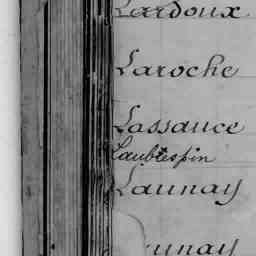 Lardoux
Laroche
Lassauce
Laubrespin
Launay
unay